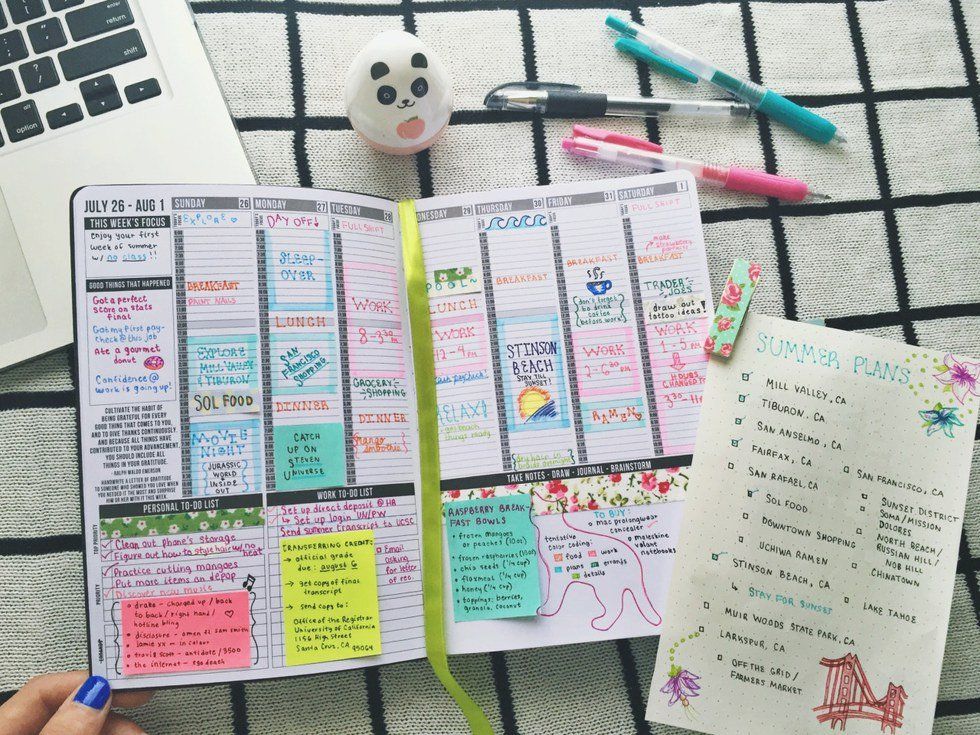 enter
return
shift
option
JULY 26 - AUG 1
THIS WEEK'S FOCUS
enjoy your first
week of summer
w/ no class!!
GOOD THINGS THAT HAPPENED
Got a perfect
score on stats
final
Got my first pay-
check @ this job
Ate a gourmet
donut
Confidence @
work is going up!
CULTIVATE THE HABIT OF
BEING GRATEFUL FOR EVERY
GOOD THING THAT COMES TO YOU,
AND TO GIVE THANKS CONTINUOUSLY.
AND BECAUSE ALL THINGS HAVE
CONTRIBUTED TO YOUR ADVANCEMENT,
YOU SHOULD INCLUDE ALL
THINGS IN YOUR GRATITUDE.
- RALPH WALDO EMERSON
HANDWRITE A LETTER OF GRATITUDE
TO SOMEONE WHO SHOWED YOU LOVE WHEN
YOU NEEDED IT THE MOST AND SURPRISE
HIM OR HER WITH IT THIS WEEK.
SUNDAY 26
EXPLORE
BREAKFAST
PAINT NAILS
EXPLORE
MILL VALLEY
& TIBURON
SOL FOOD
MOVIE
NIGHT
JURASSIC
WORLD
INSIDE OUT
MONDAY 27
DAY OFF!
SLEEP-
OVER
LUNCH
SAN
FRANCISCO
SHOPPING
DINNER
CATCH
UP ON
STEVEN
UNIVERSE
TUESDAY 28
FULL SHIFT
WORK
8-3:30
GROCERY
SHOPPING
DINNER
mango
smoothie
EDNESDAY 29
POOL~
LUNCH
WORK
12-4 PM
paycheck!
RELAX!
get beach
things ready
THURSDAY 30
BREAKFAST
STINSON
BEACH
STAY TILL
SUNSET!
FRIDAY 31
BREAKFAST
don't forget
to drink
coffee
before work!
WORK
2-6:30
RAMEN
SATURDAY 1
FULL SHIFT
make
strawberry
BREAKFAST
TRADER
JOES
draw out
tattoo ideas!
WORK
1-5 PM
HOURS
CHANGED TO
3:30-11
PERSONAL TO-DO LIST
TOP PRIORITY
Clean out phone's storage
Figure out how to style hair w/ no
heat
PRIORITY
Practice cutting mangoes
Put more items on depop
Discover new music
drake - charged up / back
to back / right hand /
hotline bling
disclosure - omen ft sam smith
jamie xx - in colour
travis scott - antidote / 3500
the internet - ego death
WORK TO-DO LIST
Set up direct deposit @ HR
Set up login UN/PW
Send summer transcript to UCSC
TRANSFERRING CREDIT:
official grade
due: august 6
get copy of final
transcript
send copy to:
Office of the Registrar
University of California
1156 High Street
Santa Cruz, CA 95064
Email
asking
for letter
of rec.
TAKE NOTES - DRAW - JOURNAL - BRAINSTORM
RASPBERRY BREAK-
FAST BOWLS
frozen mangos
or peaches (10oz)
frozen raspberries (10oz)
chia seeds (1/4 cup)
flaxmeal (1/4 cup)
honey (1/4 cup)
toppings: berries,
granola, coconut
tentative
color coding:
food
work
plans
errands
details
TO BUY:
mac prolongwear
concealer
moleskine
volant
notebooks
SUMMER PLANS
MILL VALLEY, CA
TIBURON, CA
SAN ANSELMO, CA
FAIRFAX, CA
SAN RAFAEL, CA
SOL FOOD
DOWNTOWN SHOPPING
UCHIWA RAMEN
STINSON BEACH, CA
STAY FOR SUNSET
MUIR WOODS STATE PARK, CA
LARKSPUR, CA
OFF THE GRID /
FARMERS MARKET
SAN FRANCISCO, CA
SUNSET DISTRICT
SOMA/MISSION
DOLORES
NORTH BEACH/
RUSSIAN HILL/
NOB HILL
CHINATOWN
LAKE TAHOE